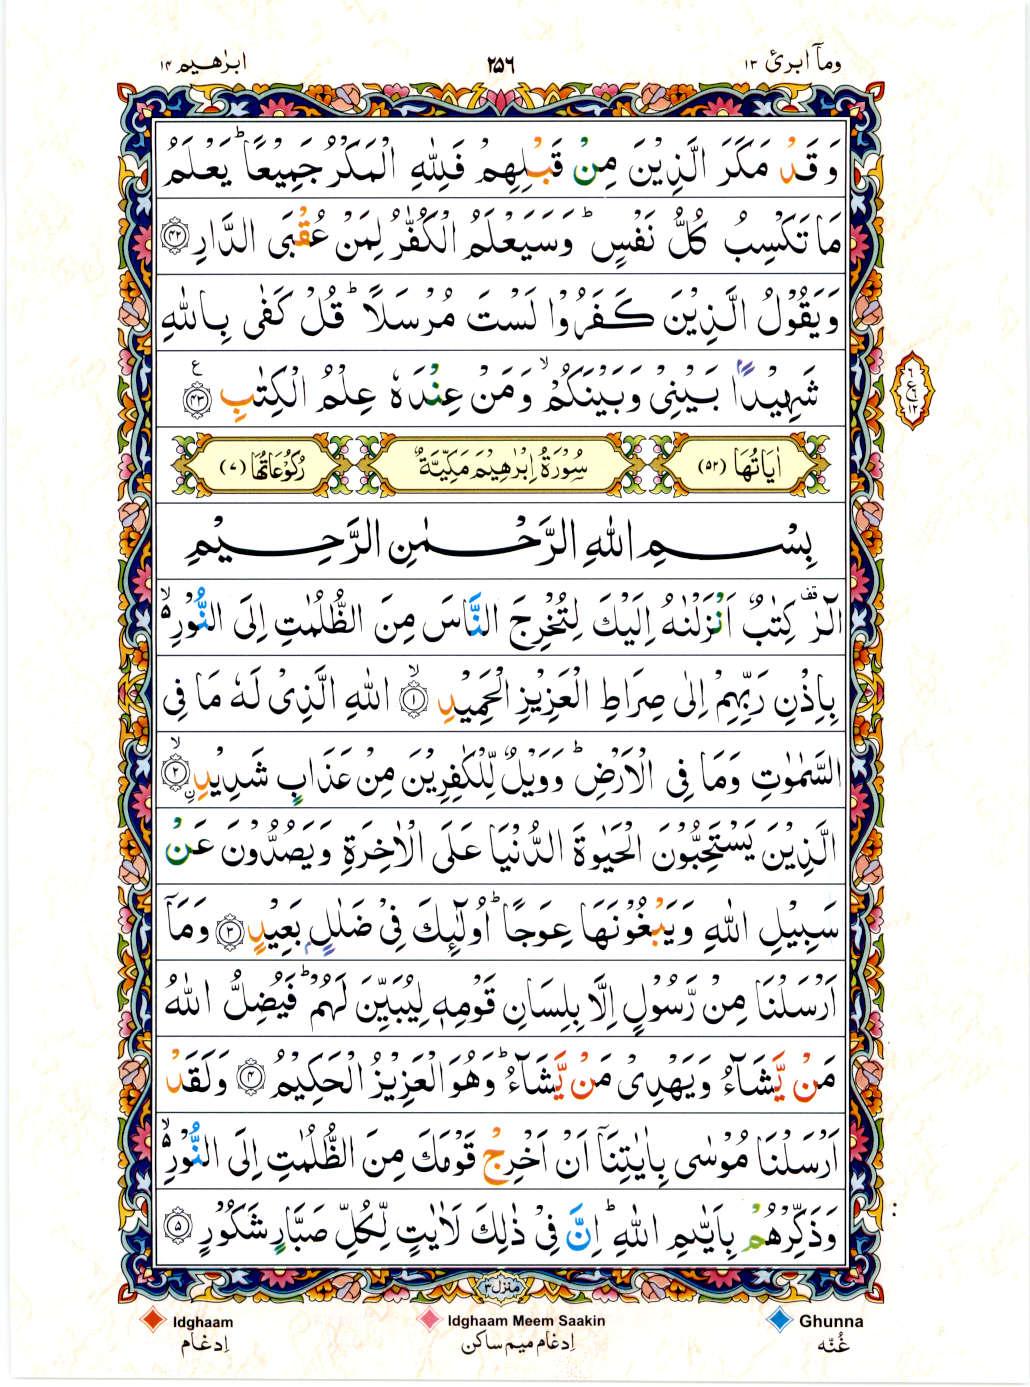 ابرٰهيم ١٤ ٢٥٦ ومآ ابرئ ١٣
وَقَدْ مَكَرَ الَّذِيْنَ مِنْ قَبْلِهِمْ فَلِلّٰهِ الْمَكْرُ جَمِيْعًا ؕ يَعْلَمُ
مَا تَكْسِبُ كُلُّ نَفْسٍ ؕ وَسَيَعْلَمُ الْكُفّٰرُ لِمَنْ عُقْبَى الدَّارِ ﴿٤٢﴾
وَيَقُوْلُ الَّذِيْنَ كَفَرُوْا لَسْتَ مُرْسَلًا ؕ قُلْ كَفٰى بِاللّٰهِ
شَهِيْدًۢا بَيْنِىْ وَبَيْنَكُمْ ۙ وَمَنْ عِنْدَهٗ عِلْمُ الْكِتٰبِ ﴿٤٣﴾ ع
٦
ع
١٢
اٰيَاتُهَا (٥٢) سُوْرَةُ اِبْرٰهِيْمَ مَكِّيَّةٌ رُكُوْعَاتُهَا (٧)
بِسْمِ اللّٰهِ الرَّحْمٰنِ الرَّحِيْمِ
الٓرٰ ۚ كِتٰبٌ اَنْزَلْنٰهُ اِلَيْكَ لِتُخْرِجَ النَّاسَ مِنَ الظُّلُمٰتِ اِلَى النُّوْرِ ۙ
بِاِذْنِ رَبِّهِمْ اِلٰى صِرَاطِ الْعَزِيْزِ الْحَمِيْدِ ۙ ﴿١﴾ اللّٰهِ الَّذِىْ لَهٗ مَا فِى
السَّمٰوٰتِ وَمَا فِى الْاَرْضِ ؕ وَوَيْلٌ لِّلْكٰفِرِيْنَ مِنْ عَذَابٍ شَدِيْدِ ۙ ﴿٢﴾
الَّذِيْنَ يَسْتَحِبُّوْنَ الْحَيٰوةَ الدُّنْيَا عَلَى الْاٰخِرَةِ وَيَصُدُّوْنَ عَنْ
سَبِيْلِ اللّٰهِ وَيَبْغُوْنَهَا عِوَجًا ؕ اُولٰٓئِكَ فِىْ ضَلٰلٍۭ بَعِيْدٍ ﴿٣﴾ وَمَآ
اَرْسَلْنَا مِنْ رَّسُوْلٍ اِلَّا بِلِسَانِ قَوْمِهٖ لِيُبَيِّنَ لَهُمْ ؕ فَيُضِلُّ اللّٰهُ
مَنْ يَّشَآءُ وَيَهْدِىْ مَنْ يَّشَآءُ ؕ وَهُوَ الْعَزِيْزُ الْحَكِيْمُ ﴿٤﴾ وَلَقَدْ
اَرْسَلْنَا مُوْسٰى بِاٰيٰتِنَآ اَنْ اَخْرِجْ قَوْمَكَ مِنَ الظُّلُمٰتِ اِلَى النُّوْرِ ۙ
وَذَكِّرْهُمْ بِاَيّٰىمِ اللّٰهِ ؕ اِنَّ فِىْ ذٰلِكَ لَاٰيٰتٍ لِّكُلِّ صَبَّارٍ شَكُوْرٍ ﴿٥﴾
منزل ٣
Idghaam Idghaam Meem Saakin Ghunna
اِدغام اِدغام ميم ساكن غُنّه